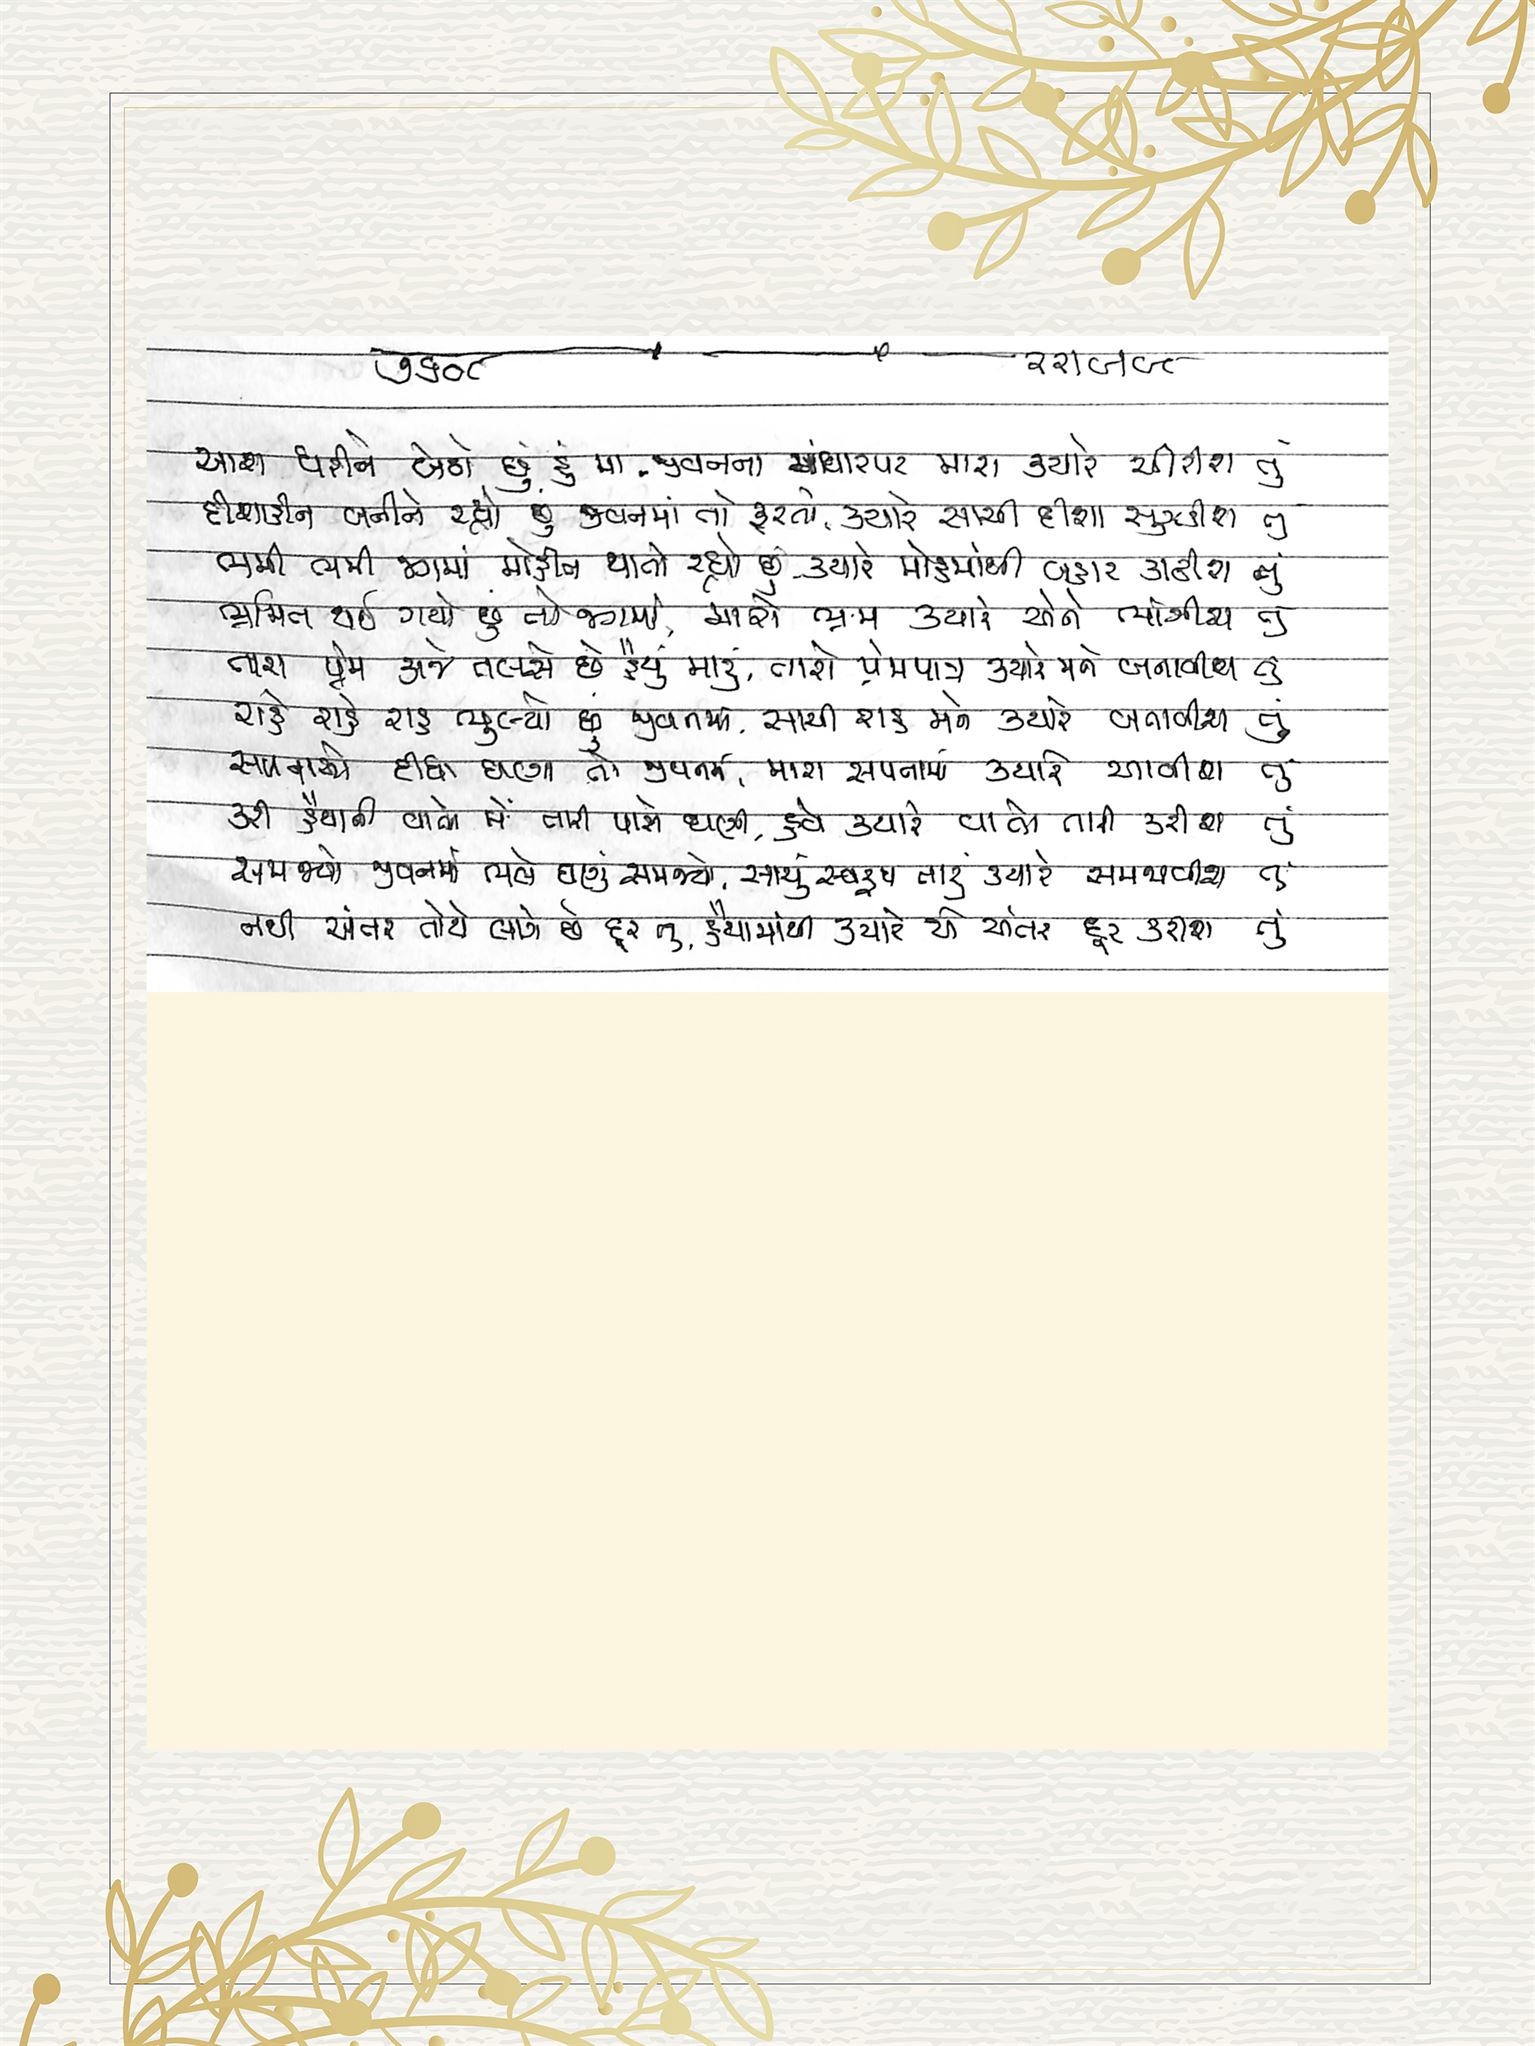 ૭૬૦૮ ૨૨૧૯૯૮
આશ ધરીને બેઠો છું હું મા. જીવનના આંધારપટ મારા ક્યારે ચીરીશ તું
દીશાહીન બનીને રહ્યો છું જીવનમાં તો ફરતો, ક્યારે સાચી દીશા સુઝાડીશ તું
ભમી ભમી જગમાં મોહીત થાતો રહ્યો છું ક્યારે મોહમાંથી બહાર કાઢીશ તું
ભ્રમિત થઈ ગયો છું તો જગમાં, મારો ભ્રમ ક્યારે એને ભાંગીશ તું
તારા પ્રેમ કાજે તલસે છે હૈયું મારું, તારો પ્રેમપાત્ર ક્યારે મને બનાવીશ તું
રાહે રાહે રાહ ભુલ્યો છું જીવનમાં, સાચી રાહ મને ક્યારે બતાવીશ તું
સાથ દીધા ઘણા તો જીવનમાં, મારા સપનામાં ક્યારે આવીશ તું
કરી હૈયાની વાતો મેં તારી પાસે ઘણી, હવે ક્યારે વાતો તારી કરીશ તું
સમજ્યો જીવનમાં ભલે ઘણું સમજ્યો, સાચું સ્વરૂપ તારું ક્યારે સમજાવીશ તું
નથી અંતર તોયે લાગે છે દૂર તું, હૈયામાંથી ક્યારે એ અંતર દૂર કરીશ તું